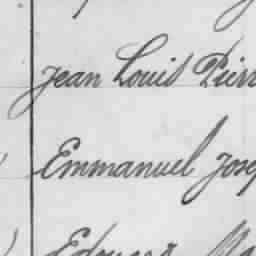 Jean Louis Pierr
Emmanuel Jose
Edouard Ma